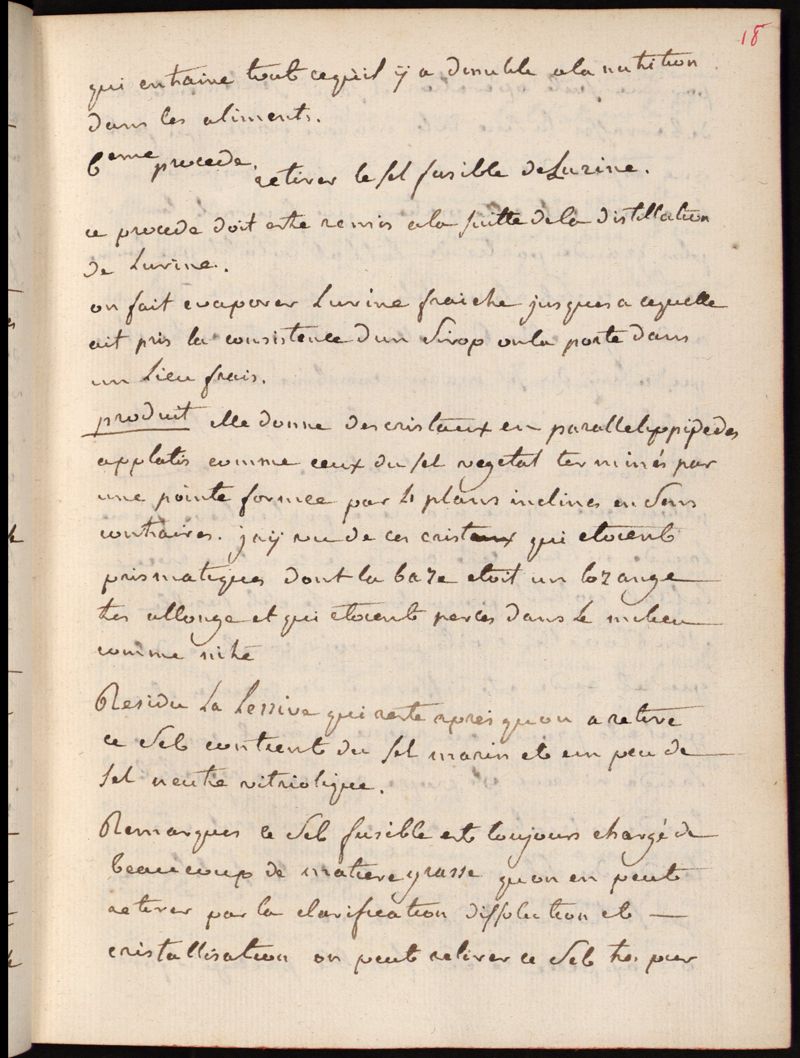 18
qui entraine tout cequil ÿ a dinutile a la nutrition
dans les aliments.
6eme procede.
retirer le sel fusible de Lurine.
ce procede doit estre remis a la suitte de la distillation
de Lurine.
on fait evaporer Lurine fraiche jusques a cequelle
ait pris la consistence dun Sirop on la porte dans
un Lieu frais.
produit elle donne des cristaux en parallelippipedes
applatis comme ceux du sel vegetal terminés par
une pointe formee par 4 plans inclines en Sens
contraires. jaÿ vu de ces cristaux qui etoient
prismatiques dont la baze etoit un lozange
tres allonge et qui etoient percés dans Le milieu
comme nitre
Residu La Lessive qui reste apres quon a retire
ce Sel contient du sel marin et un peu de
sel neutre vitriolique.
Remarques ce Sel fusible est toujours chargé de
beaucoup de matiere grasse quon en peut
retirer par la clarification dissolution et —
cristallisation on peut retirer ce Sel tres pur